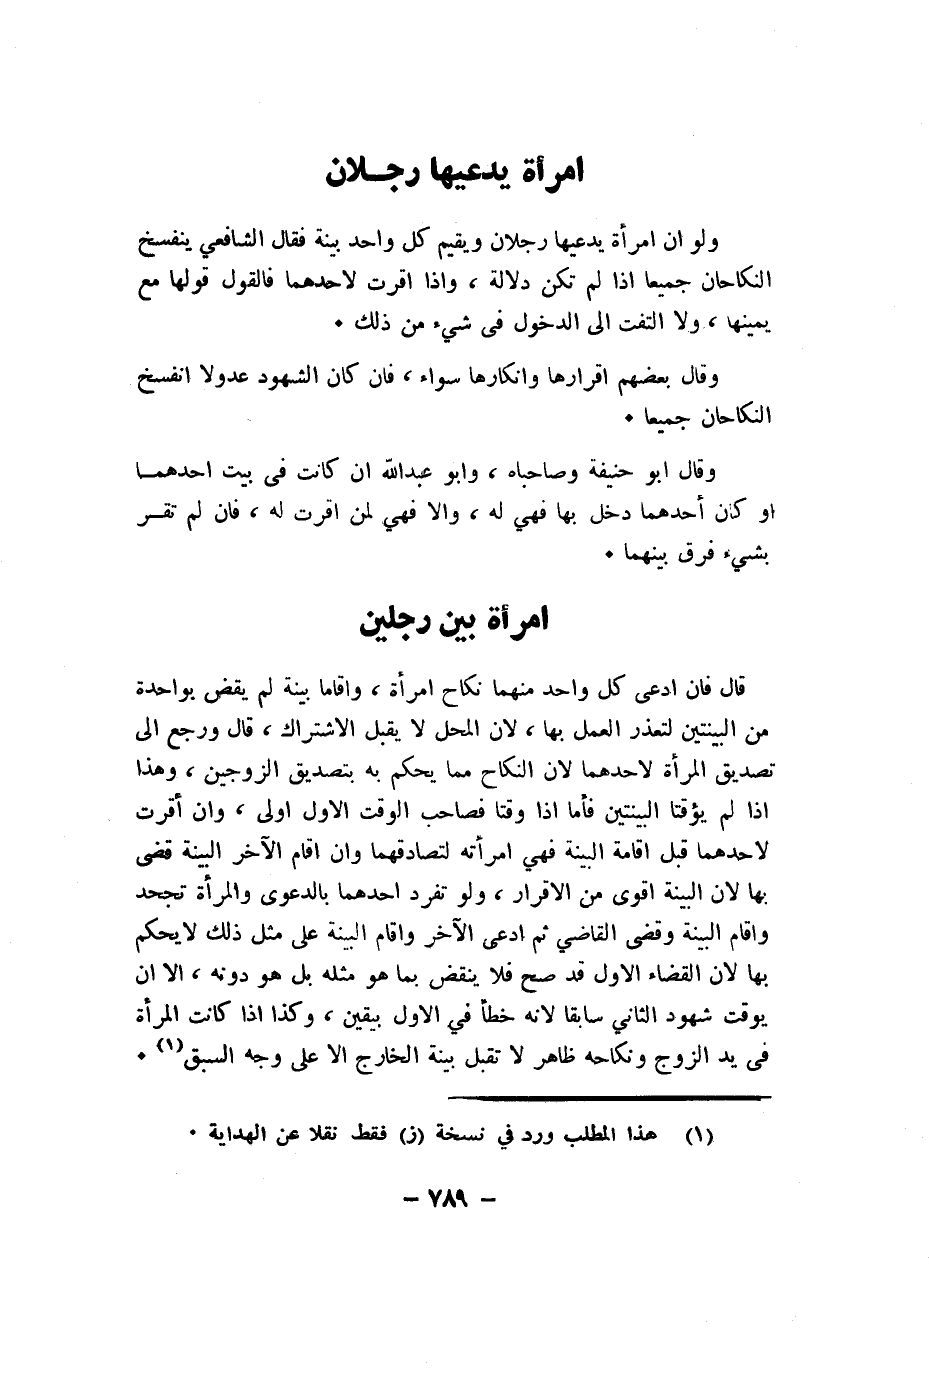 امرأة يدعيها رجــلان
ولو ان امرأة يدعيها رجلان ويقيم كل واحد بينة فقال الشافعي ينفسخ
النكاحان جميعا اذا لم تكن دلالة ، واذا اقرت لاحدهما فالقول قولها مع
يمينها ، ولا التفت الى الدخول فى شيء من ذلك ٠
وقال بعضهم اقرارها وانكارها سواء ، فان كان الشهود عدولا انفسخ
النكاحان جميعا ٠
وقال ابو حنيفة وصاحباه ، وابو عبدالله ان كانت فى بيت احدهمــا
او كان أحدهما دخل بها فهي له ، والا فهي لمن اقرت له ، فان لم تقــر
بشيء فرق بينهما ٠
امرأة بين رجلين
قال فان ادعى كل واحد منهما نكاح امرأة ، واقاما بينة لم يقض بواحدة
من البينتين لتعذر العمل بها ، لان المحل لا يقبل الاشتراك ، قال ورجع الى
تصديق المرأة لاحدهما لان النكاح مما يحكم به بتصديق الزوجين ، وهذا
اذا لم يؤقتا البينتين فأما اذا وقتا فصاحب الوقت الاول اولى ، وان أقرت
لاحدهما قبل اقامة البينة فهي امرأته لتصادقهما وان اقام الآخر البينة قضى
بها لان البينة اقوى من الاقرار ، ولو تفرد احدهما بالدعوى والمرأة تجحد
واقام البينة وقضى القاضي ثم ادعى الآخر واقام البينة على مثل ذلك لايحكم
بها لان القضاء الاول قد صح فلا ينقض بما هو مثله بل هو دونه ، الا ان
يوقت شهود الثاني سابقا لانه خطأ في الاول بيقين ، وكذا اذا كانت المرأة
فى يد الزوج ونكاحه ظاهر لا تقبل بينة الخارج الا على وجه السبق(١) ٠
(١) هذا المطلب ورد في نسخة (ز) فقط نقلا عن الهداية ٠
– ٧٨٩ –